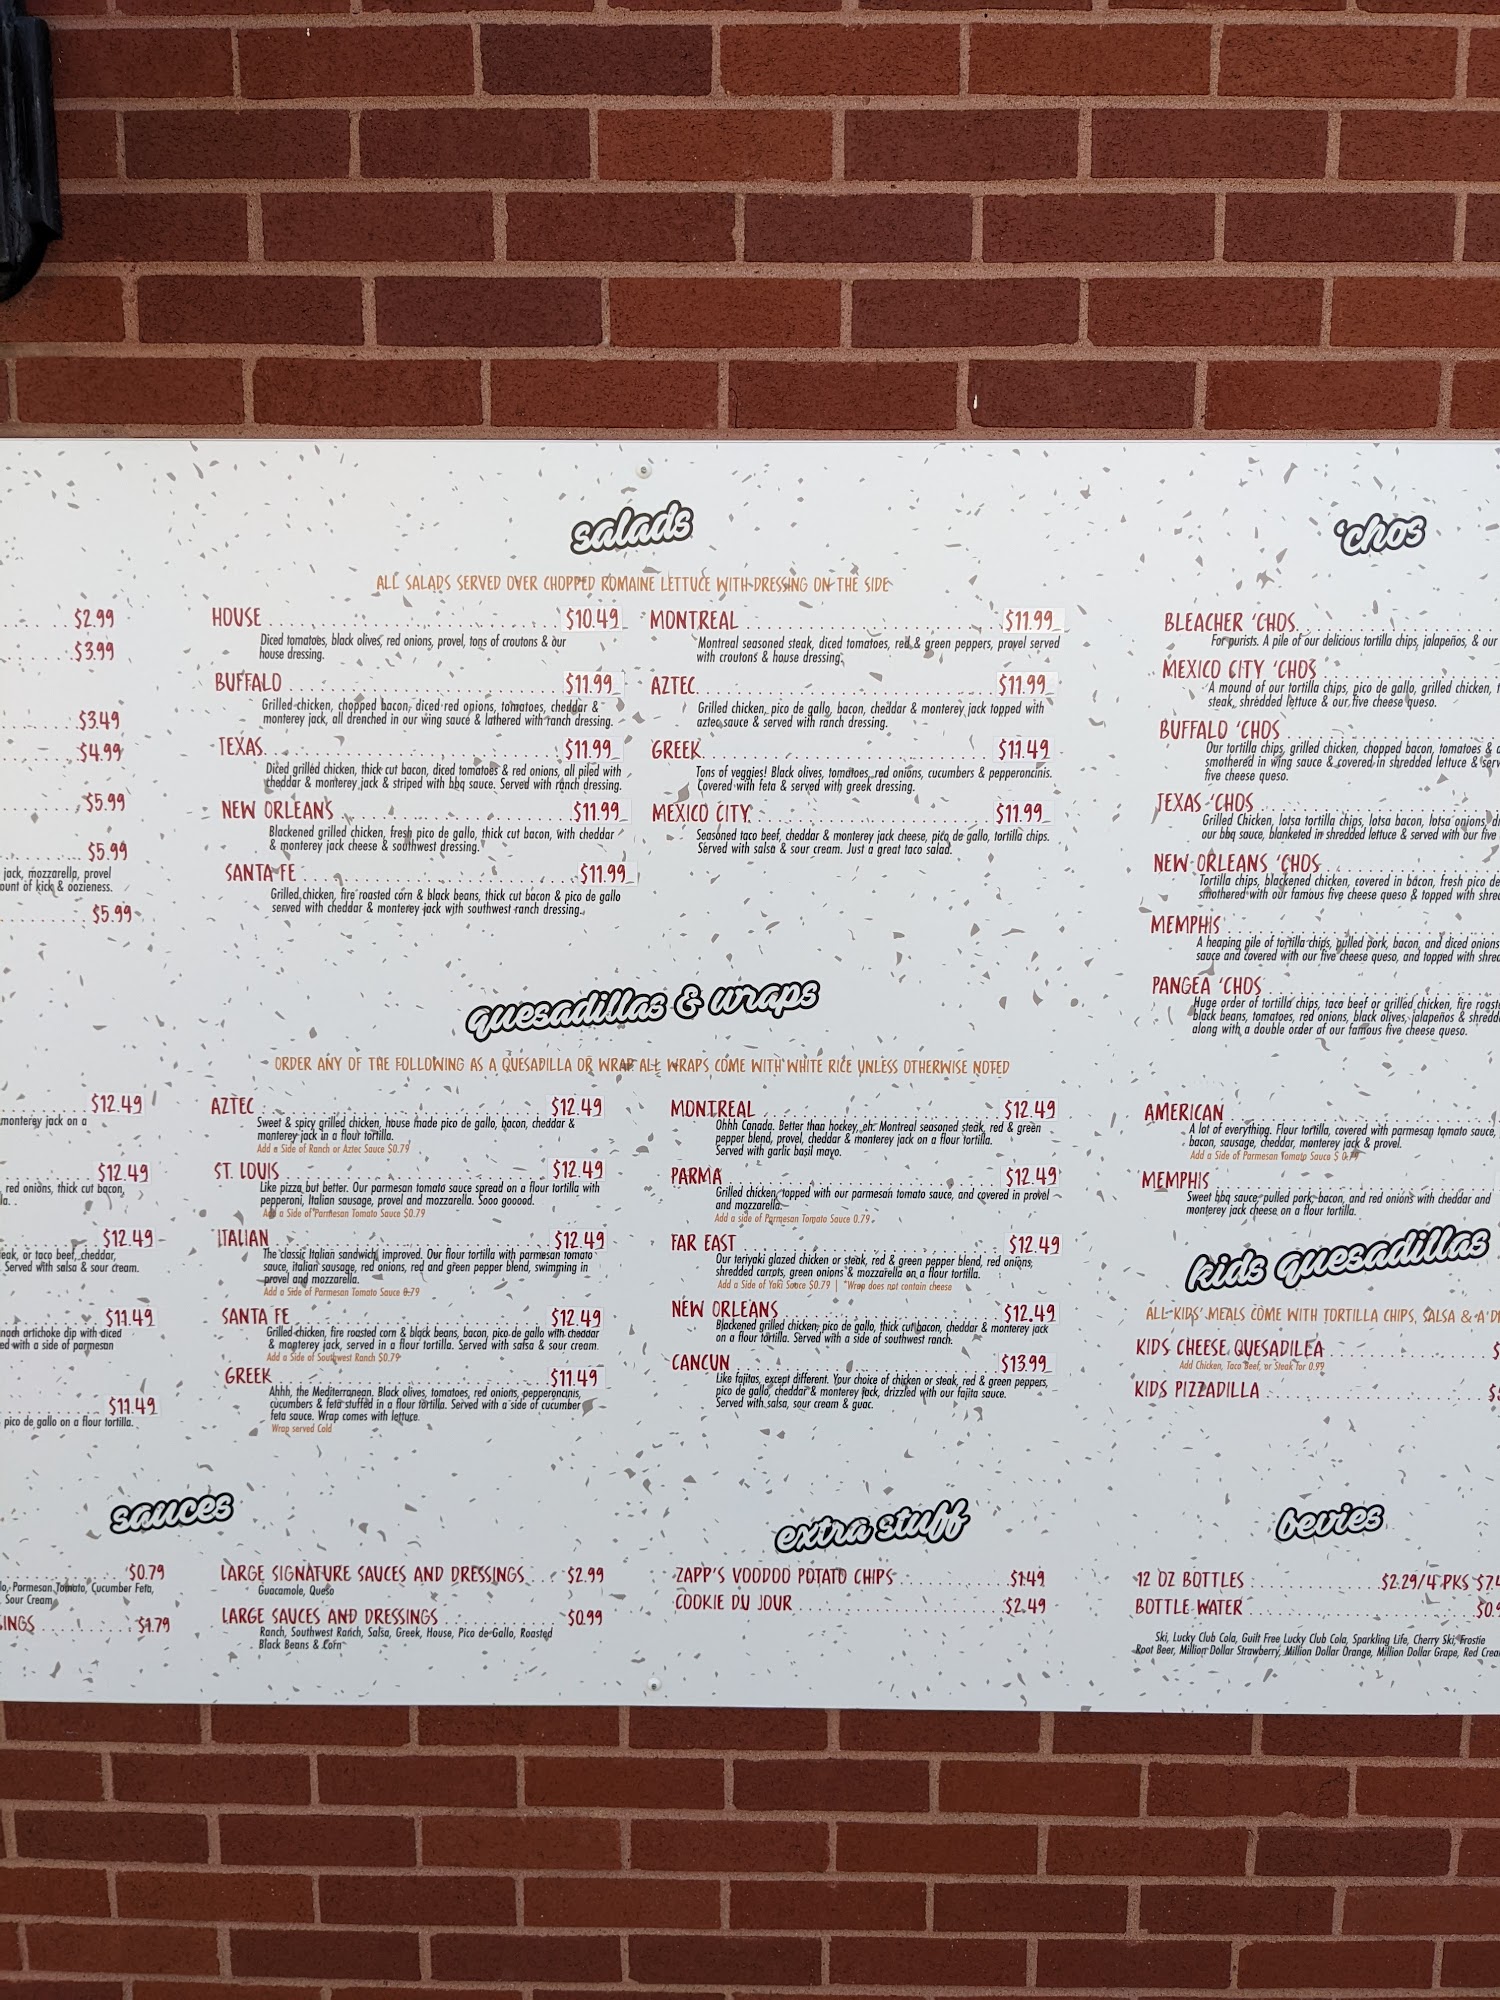 salads
ALL SALADS SERVED OVER CHOPPED ROMAINE LETTUCE WITH DRESSING ON THE SIDE
HOUSE $10.49
Diced tomatoes, black olives, red onions, provel, tons of croutons & our
house dressing.
BUFFALO $11.99
Grilled chicken, chopped bacon, diced red onions, tomatoes, cheddar &
monterey jack, all drenched in our wing sauce & lathered with ranch dressing.
TEXAS $11.99
Diced grilled chicken, thick cut bacon, diced tomatoes & red onions, all piled with
cheddar & monterey jack & striped with bbq sauce. Served with ranch dressing.
NEW ORLEANS $11.99
Blackened grilled chicken, fresh pico de gallo, thick cut bacon, with cheddar
& monterey jack cheese & southwest dressing.
SANTA FE $11.99
Grilled chicken, fire roasted corn & black beans, thick cut bacon & pico de gallo
served with cheddar & monterey jack with southwest ranch dressing.
MONTREAL $11.99
Montreal seasoned steak, diced tomatoes, red & green peppers, provel served
with croutons & house dressing.
AZTEC $11.99
Grilled chicken, pico de gallo, bacon, cheddar & monterey jack topped with
aztec sauce & served with ranch dressing.
GREEK $11.49
Tons of veggies! Black olives, tomatoes, red onions, cucumbers & pepperoncinis.
Covered with feta & served with greek dressing.
MEXICO CITY $11.99
Seasoned taco beef, cheddar & monterey jack cheese, pico de gallo, tortilla chips.
Served with salsa & sour cream. Just a great taco salad.
'chos
BLEACHER 'CHOS
For purists. A pile of our delicious tortilla chips, jalapeños, & our
MEXICO CITY 'CHOS
A mound of our tortilla chips, pico de gallo, grilled chicken,
steak, shredded lettuce & our five cheese queso.
BUFFALO 'CHOS
Our tortilla chips, grilled chicken, chopped bacon, tomatoes &
smothered in wing sauce & covered in shredded lettuce &
five cheese queso.
TEXAS 'CHOS
Grilled Chicken, lotsa tortilla chips, lotsa bacon, lotsa onions,
our bbq sauce, blanketed in shredded lettuce & served with our five
NEW ORLEANS 'CHOS
Tortilla chips, blackened chicken, covered in bacon, fresh pico de
smothered with our famous five cheese queso & topped with
MEMPHIS
A heaping pile of tortilla chips, pulled pork, bacon, and diced onions
sauce and covered with our five cheese queso, and topped with
PANGEA 'CHOS
Huge order of tortilla chips, taco beef or grilled chicken, fire
black beans, tomatoes, red onions, black olives, jalapeños &
along with a double order of our famous five cheese queso.
$2.99
$3.99
$3.49
$4.99
$5.99
$5.99
jack, mozzarella, provel
ount of kick & oozieness.
$5.99
quesadillas & wraps
ORDER ANY OF THE FOLLOWING AS A QUESADILLA OR WRAP. ALL WRAPS COME WITH WHITE RICE UNLESS OTHERWISE NOTED
$12.49
monterey jack on a
$12.49
red onions, thick cut bacon,
$12.49
eak, or taco beef, cheddar,
Served with salsa & sour cream.
$11.49
nach artichoke dip with diced
ed with a side of parmesan
$11.49
pico de gallo on a flour tortilla.
AZTEC $12.49
Sweet & spicy grilled chicken, house made pico de gallo, bacon, cheddar &
monterey jack in a flour tortilla.
Add a Side of Ranch or Aztec Sauce $0.79
ST. LOUIS $12.49
Like pizza but better. Our parmesan tomato sauce spread on a flour tortilla with
pepperoni, Italian sausage, provel and mozzarella. Sooo gooood.
Add a Side of Parmesan Tomato Sauce $0.79
ITALIAN $12.49
The classic Italian sandwich, improved. Our flour tortilla with parmesan tomato
sauce, italian sausage, red onions, red and green pepper blend, swimming in
provel and mozzarella.
Add a Side of Parmesan Tomato Sauce 0.79
SANTA FE $12.49
Grilled chicken, fire roasted corn & black beans, bacon, pico de gallo with cheddar
& monterey jack, served in a flour tortilla. Served with salsa & sour cream.
Add a Side of Southwest Ranch $0.79
GREEK $11.49
Ahhh, the Mediterranean. Black olives, tomatoes, red onions, pepperoncinis,
cucumbers & feta stuffed in a flour tortilla. Served with a side of cucumber
feta sauce. Wrap comes with lettuce.
Wrap served Cold
MONTREAL $12.49
Ohhh Canada. Better than hockey, eh. Montreal seasoned steak, red & green
pepper blend, provel, cheddar & monterey jack on a flour tortilla.
Served with garlic basil mayo.
PARMA $12.49
Grilled chicken, topped with our parmesan tomato sauce, and covered in provel
and mozzarella.
Add a side of Parmesan Tomato Sauce 0.79
FAR EAST $12.49
Our teriyaki glazed chicken or steak, red & green pepper blend, red onions,
shredded carrots, green onions & mozzarella on a flour tortilla.
Add a Side of Yaki Sauce $0.79 | *Wrap does not contain cheese
NEW ORLEANS $12.49
Blackened grilled chicken, pico de gallo, thick cut bacon, cheddar & monterey jack
on a flour tortilla. Served with a side of southwest ranch.
CANCUN $13.99
Like fajitas, except different. Your choice of chicken or steak, red & green peppers,
pico de gallo, cheddar & monterey jack, drizzled with our fajita sauce.
Served with salsa, sour cream & guac.
AMERICAN
A lot of everything. Flour tortilla, covered with parmesan tomato sauce,
bacon, sausage, cheddar, monterey jack & provel.
Add a Side of Parmesan Tomato Sauce $ 0.79
MEMPHIS
Sweet bbq sauce, pulled pork, bacon, and red onions with cheddar and
monterey jack cheese on a flour tortilla.
kids quesadillas
ALL KIDS' MEALS COME WITH TORTILLA CHIPS, SALSA & A
KIDS CHEESE QUESADILLA
Add Chicken, Taco Beef, or Steak for 0.99
KIDS PIZZADILLA
sauces
$0.79
Parmesan Tomato, Cucumber Feta,
Sour Cream
INGS $1.79
LARGE SIGNATURE SAUCES AND DRESSINGS $2.99
Guacamole, Queso
LARGE SAUCES AND DRESSINGS $0.99
Ranch, Southwest Ranch, Salsa, Greek, House, Pico de Gallo, Roasted
Black Beans & Corn
extra stuff
ZAPP'S VOODOO POTATO CHIPS $1.49
COOKIE DU JOUR $2.49
bevies
12 OZ BOTTLES $2.29/4 PKS
BOTTLE WATER
Ski, Lucky Club Cola, Guilt Free Lucky Club Cola, Sparkling Life, Cherry Ski, Frostie
Root Beer, Million Dollar Strawberry, Million Dollar Orange, Million Dollar Grape, Red